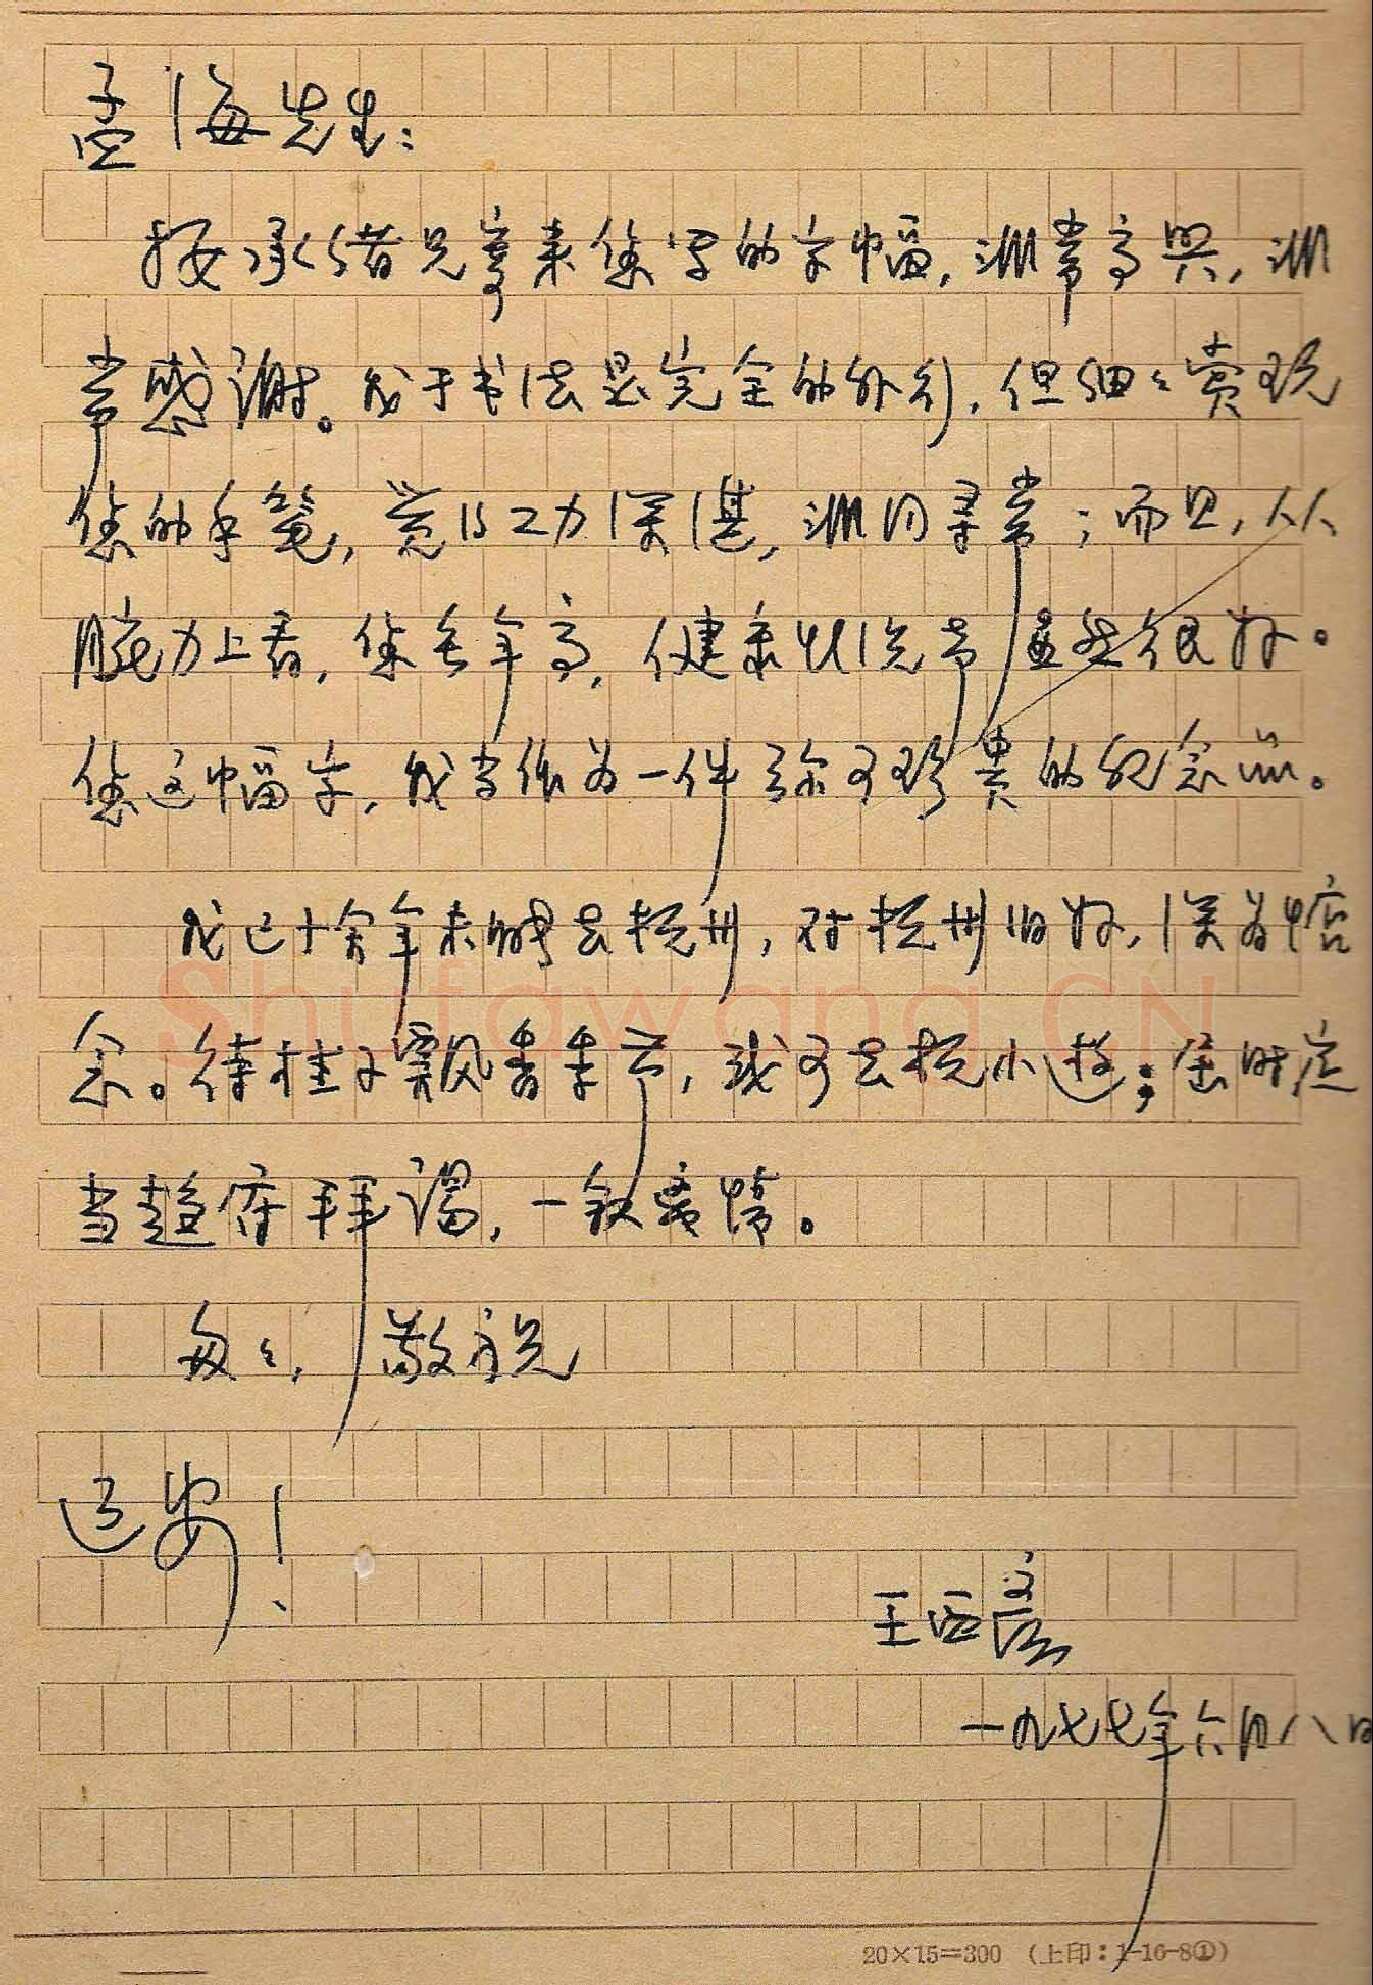 孟海先生：
接承绪兄寄来您写的字幅，非常高兴，非
常感谢。我于书法是完全的外行，但细々赏玩
您的手笔，觉得工力深湛，非同寻常；而且，从
腕力上看，您老年高，健康状况当益然很好。
您这幅字，我当作为一件弥可珍贵的纪念品。
我已十余年未能去杭州，对杭州旧好，深为惦
念。待桂子飘香季节，或可去杭小游；届时定
当趋府拜谒，一叙离情。
匆々，敬祝
近安！
王西彦
一九七七年六月八日
20×15=300 （上印：1-16-8①）
Shufawang.CN